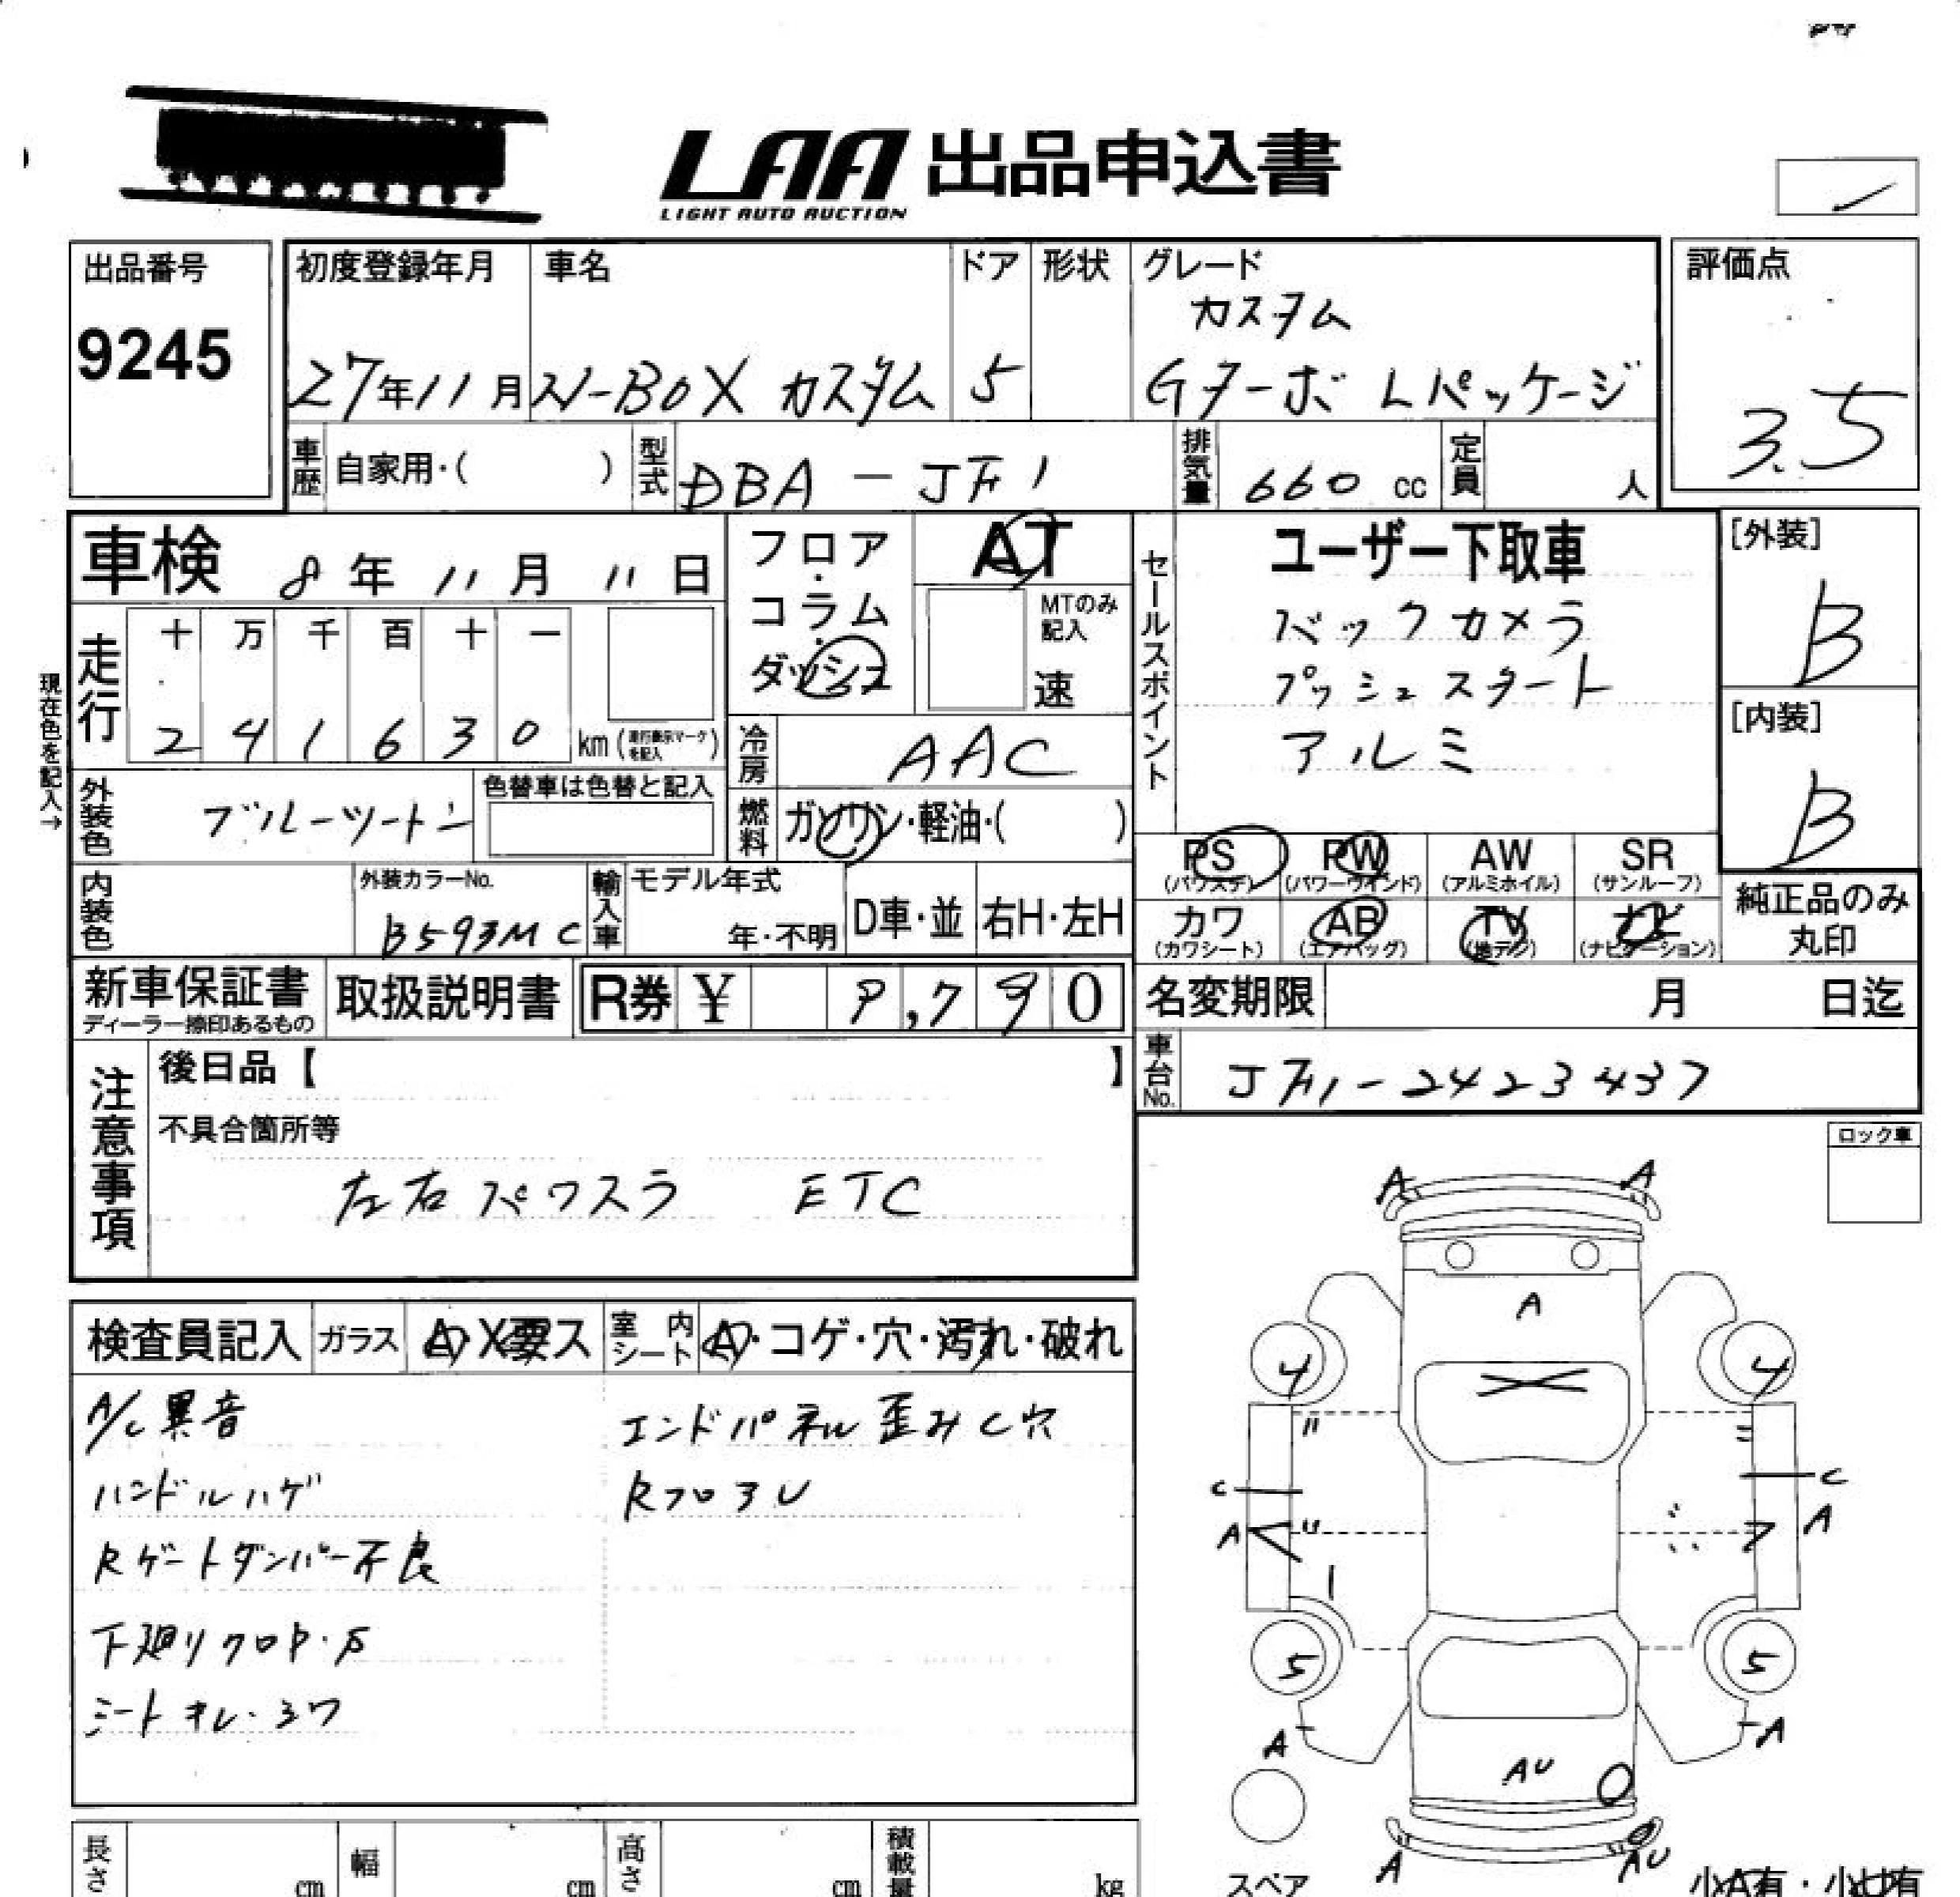 LAA 出品申込書
LIGHT AUTO AUCTION
出品番号
9245
初度登録年月
27年11月
車名
N-BOX カスタム
ドア
5
形状
グレード
カスタム
Gターボ Lパッケージ
評価点
3.5
車歴
自家用・( )
型式
DBA-JF1
排気量
660 cc
定員
人
車検 8年 11月 11日
フロア・コラム・ダッシュ
AT
MTのみ記入
速
セールスポイント
ユーザー下取車
バックカメラ
プッシュスタート
アルミ
[外装]
B
[内装]
B
現在色を記入→
走行
十 万 千 百 十 一
2 4 1 6 3 0 km (走行表示マークを記入)
冷房
AAC
外装色
ブルーツートン
色替車は色替と記入
燃料
ガソリン・軽油・( )
PS
(パワステ)
PW
(パワーウインド)
AW
(アルミホイル)
SR
(サンルーフ)
カワ
(カワシート)
AB
(エアバッグ)
TV
(地デジ)
ナビ
(ナビゲーション)
純正品のみ
丸印
内装色
外装カラーNo.
B593MC
輸入車
モデル年式
年・不明
D車・並
右H・左H
新車保証書
ディーラー捺印あるもの
取扱説明書
R券 ¥ 9,790
名変期限 月 日迄
車台No.
JF1-2423437
注意事項
後日品【 】
不具合箇所等
左右パワスラ ETC
ロック車
検査員記入
ガラス
A・X要ス
室内シート
A・コゲ・穴・汚れ・破れ
A/C異音
ハンドルハゲ
Rゲートダンパー不良
下廻りクロP・S
シートキレ・シワ
エンドパネル歪みC穴
RフロアU
A A
A
4 4
C C
A A
5 5
A A
AU
A AU
スペア
小A有・小U有
長さ cm
幅 cm
高さ cm
積載量 kg